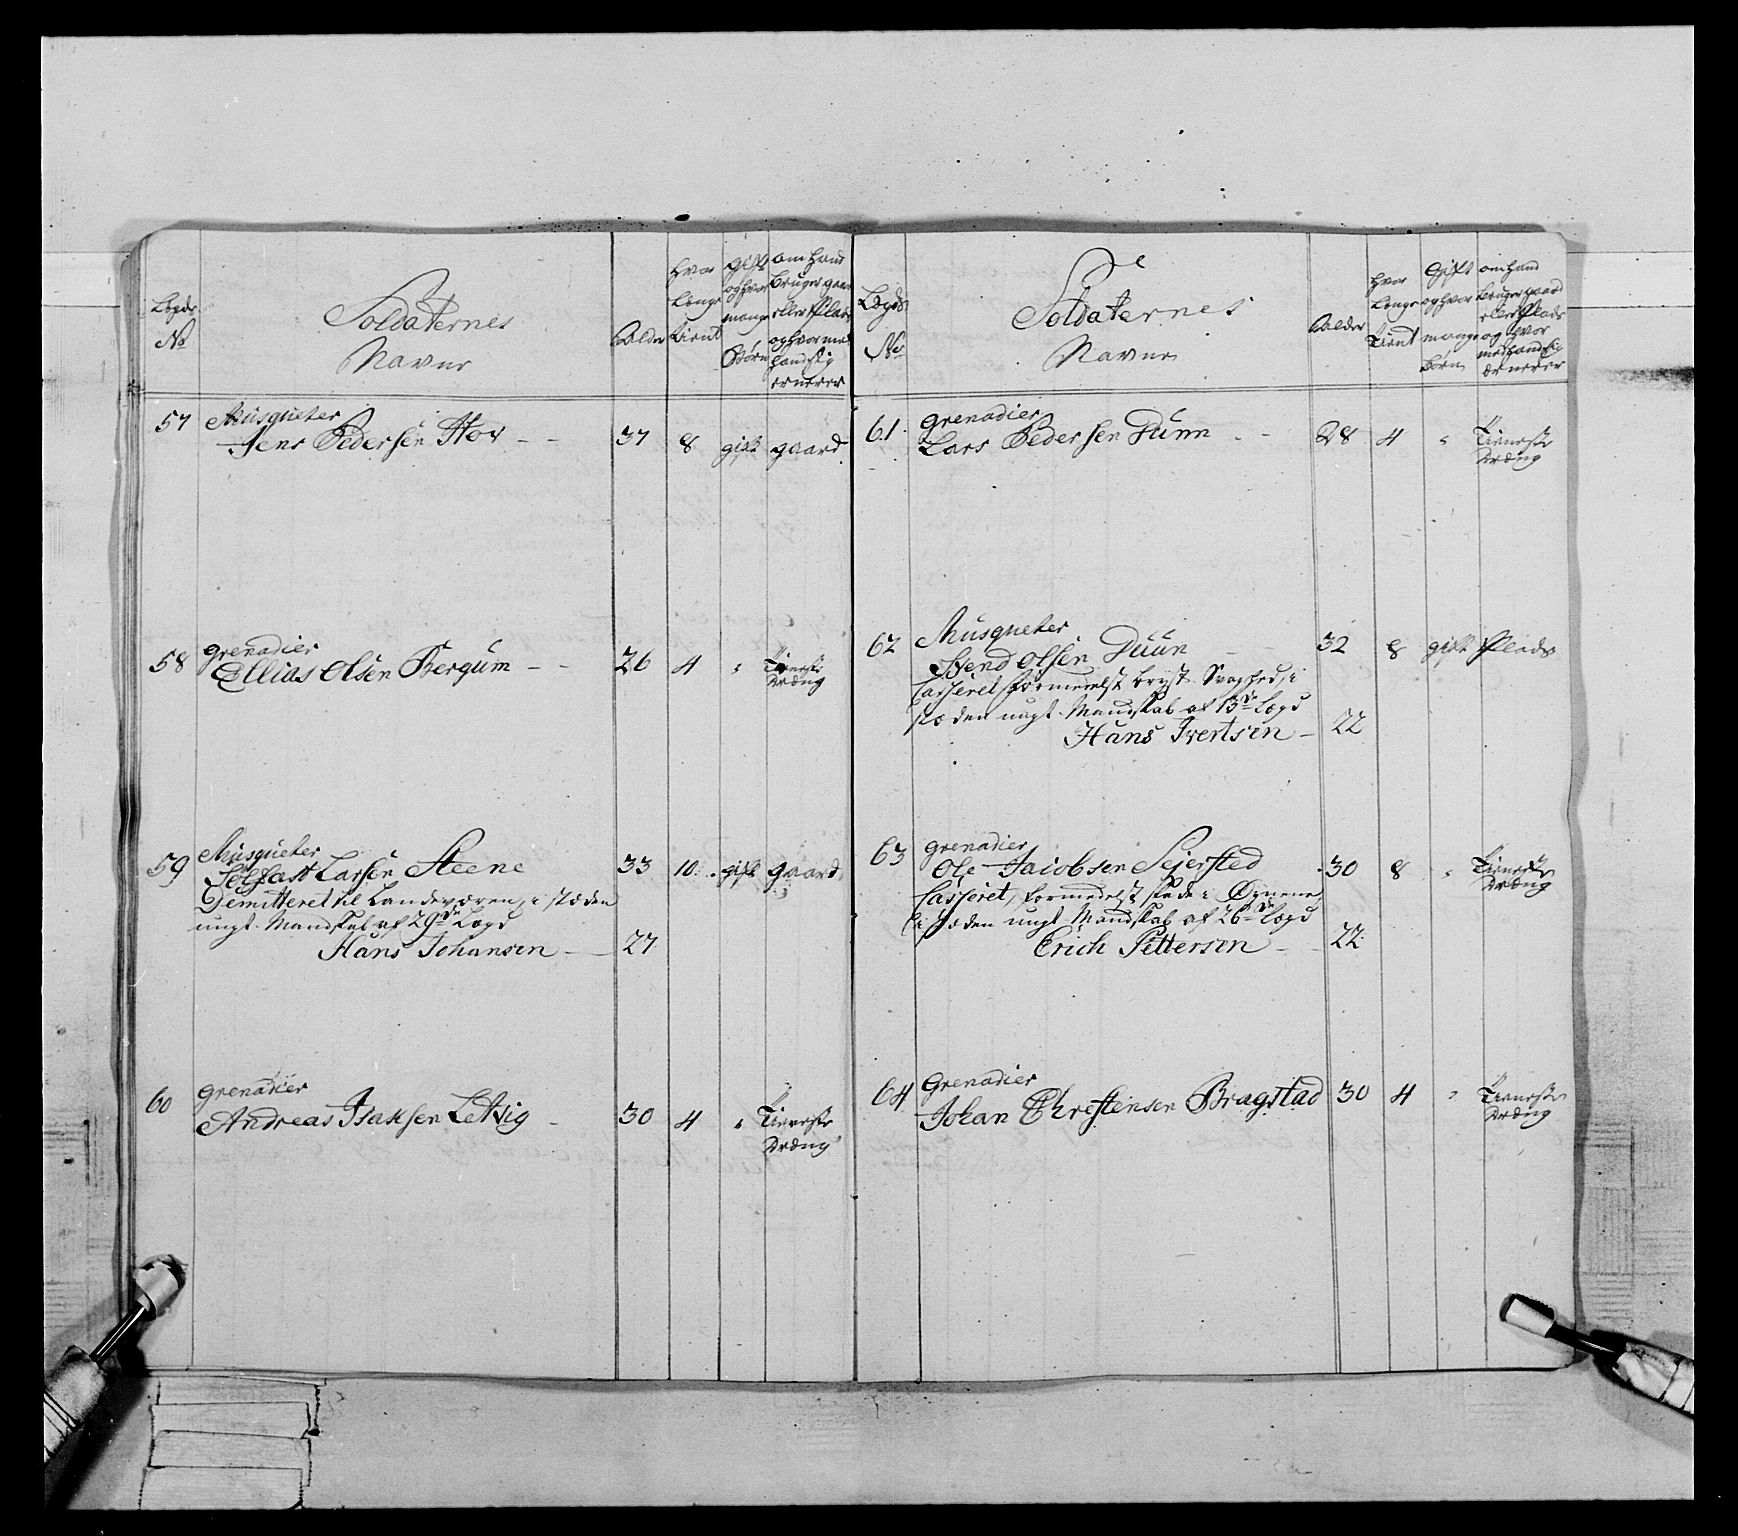 Legds No
Soldaternes Navne
Alder
Hvor Længe Tient
gift og hvor mange Børn
om hand bruger gaard eller Plads og hvor med hand sig ernerer
57 Musqueter
Jens Pedersen Hov - - 37 8 gift gaard
58 grenadier
Ellias Olsen Bergum - - 26 4 " Tieneste Dræng
59 Musqueter
Larsen Steene 33 10 gift gaard
Demitteret til Landeværen, i stæden
ungt Mandskab af 29de Lægd
Hans Johansen - 27
60 Grenadier
Andreas Isaksen Letvig - 30 4 " Tieneste Dræng
Lægds No
Soldaternes Navne
Alder
Hvor Længe Tient
Gift og hvor mange Børn
om hand bruger gaard eller Plads og hvor med hand sig ærnerer
61. grenadier
Lars Pedersen Duun - - 28 4 " Tieneste Dræng
62 Musqueter
Svend Olsen Duun 32 8 gift Plads
Casseret formedelst bryst Svaghed, i
stæden ungt Mandskab af 13de Lægd
Hans Ivertsen - 22
63 grenadier
Ole Jacobsen Sejersted 30 8 " Tieneste Dræng
Casseret, formedelst skade i Øynene,
i stæden ungt Mandskab af 26de Lægd
Erich Pettersen - - 22
64 Grenadier
Johan Chrestensen Bragstad 30 4 " Tieneste Dræng